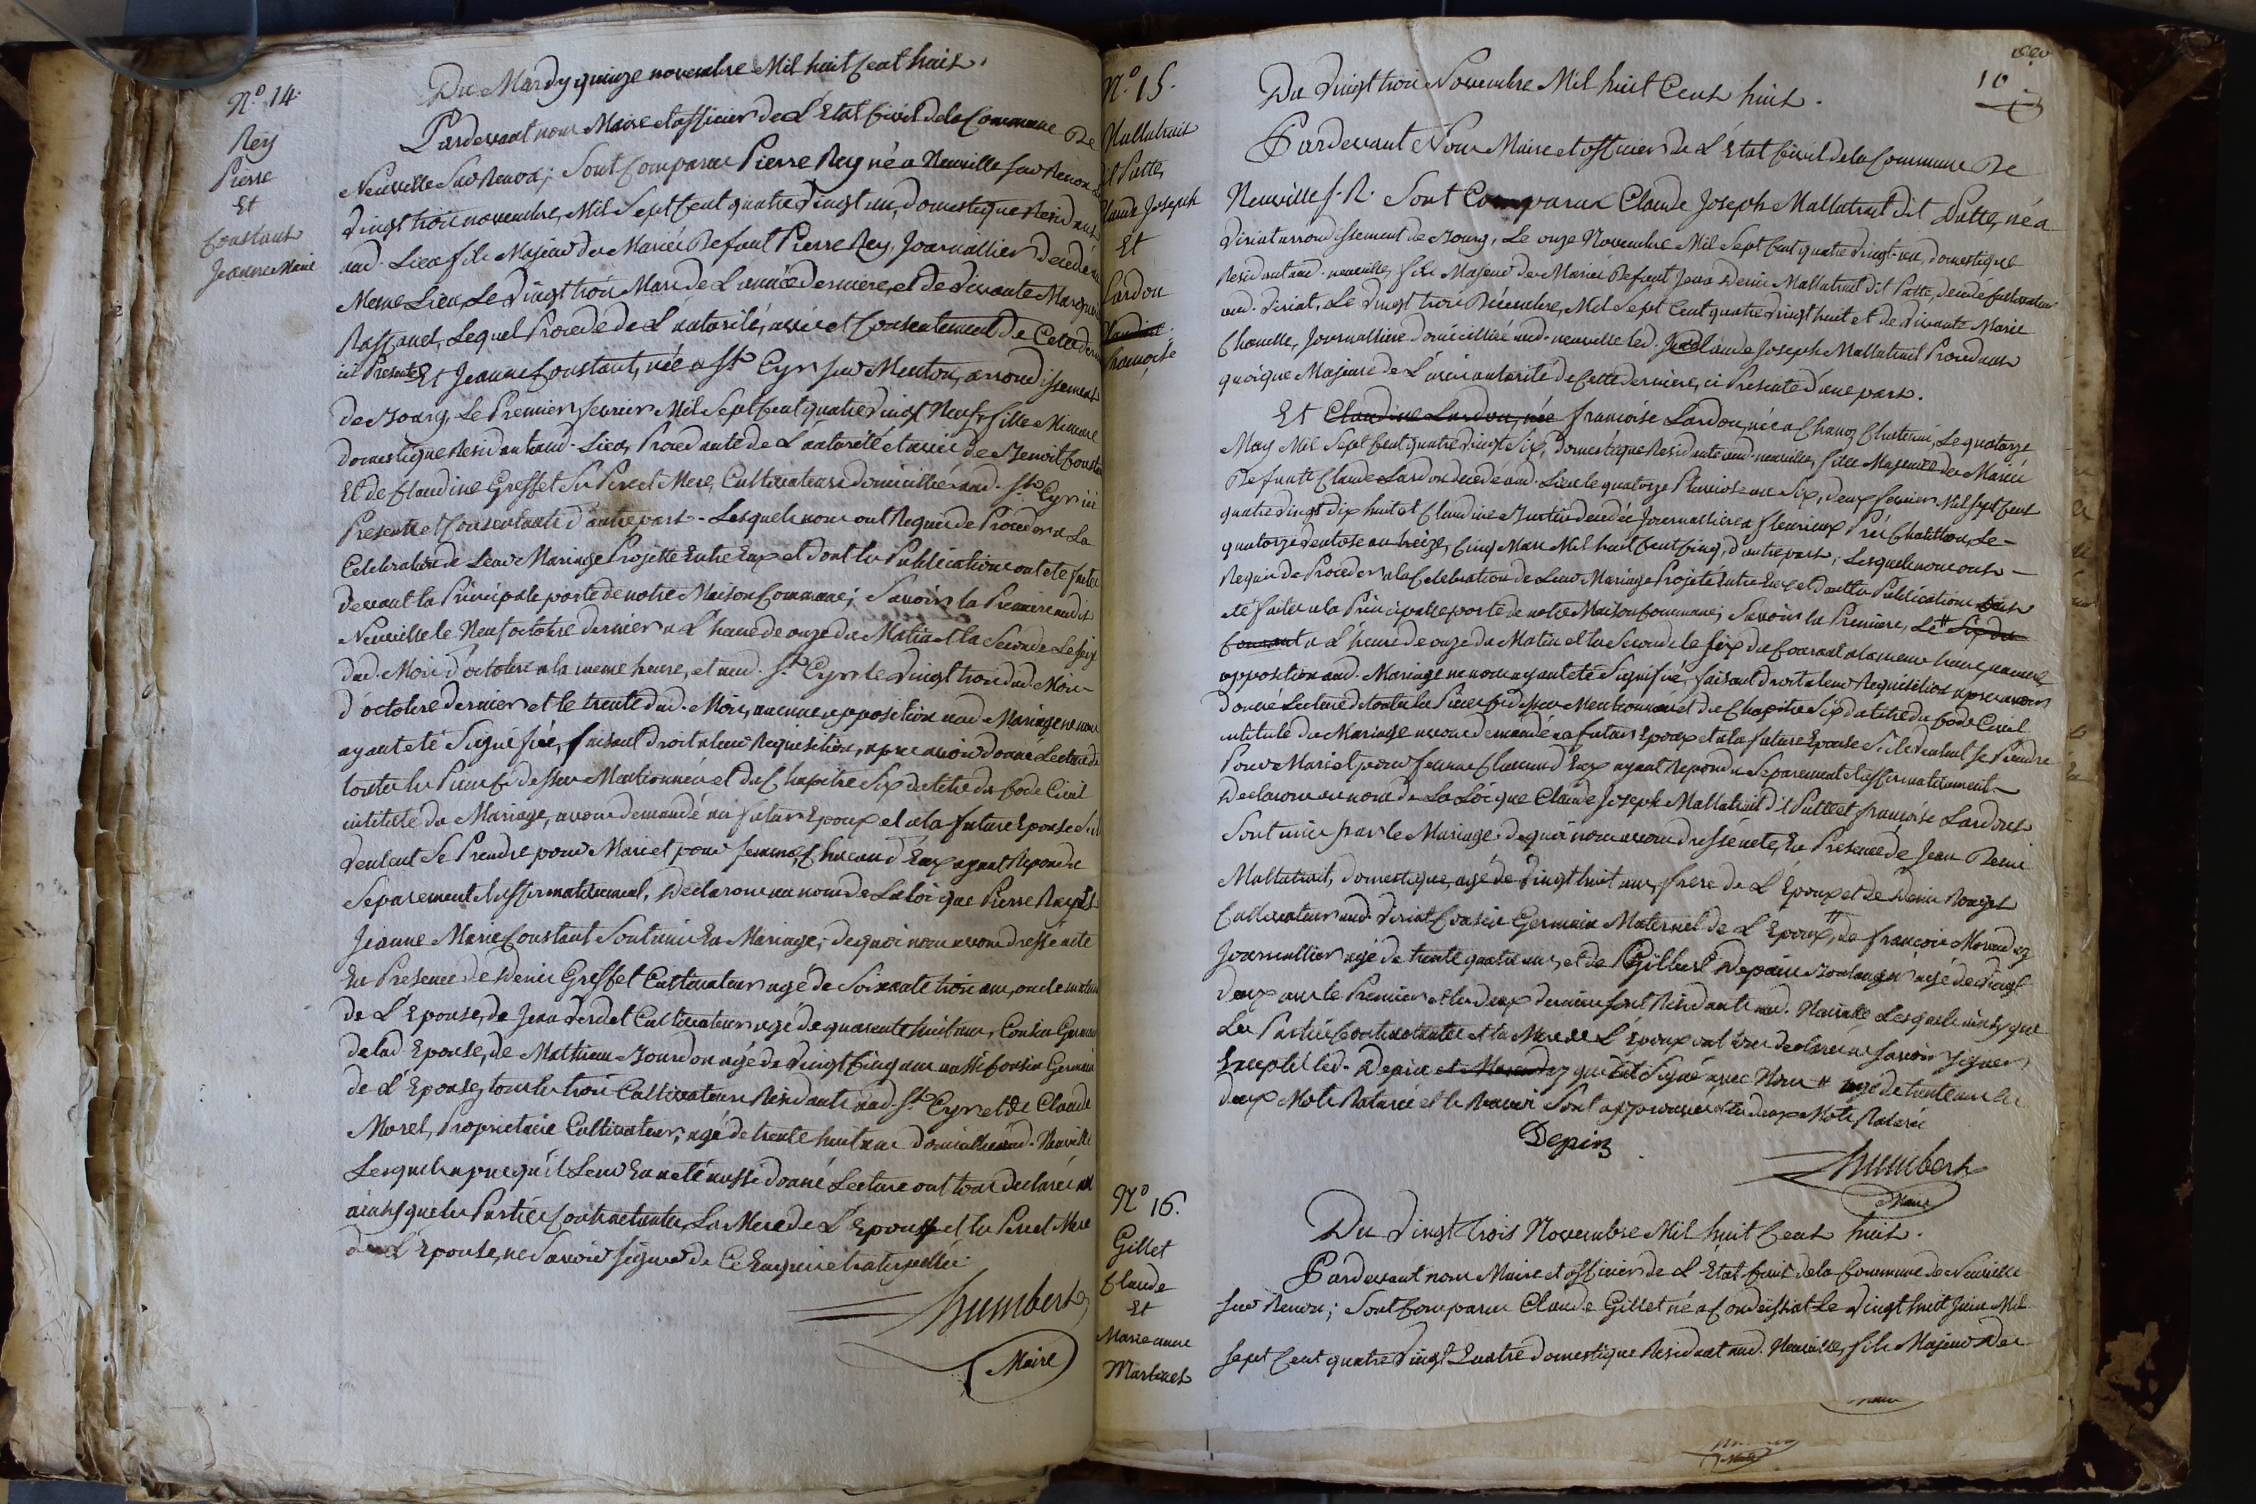 N.o 14.
Rey
Pierre
Et
Constant
Jeanne Marie
Du Mardy quinze novembre Mil huit Cent huit.
Pardevant nous Maire et officier de L'Etat Civil de la Commune De
Neuville Sur Renon; Sont Comparus Pierre Rey né a Neuville sur Renon Le
vingt trois novembre, Mil Sept Cent quatre vingt un, domestique Residant
aud. Lieu fils Majeur des Mariés Defunt Pierre Rey, Journallier decedé au
Meme Lieu, Le vingt trois Mars de L'année derniere, et de vivante Marguerite
Lequel Procede de L'autorité, avis et Consentement de Cette derniere
ici Presente Et Jeanne Constant, née a St. Cyr sur Menton, arrondissement
de Bourg, Le Premier fevrier Mil Sept Cent quatre vingt Neuf, fille Mineure
domestique Residant aud. Lieu, Procedante de L'autorité et avis de Benoit Constant
Et de Claudine Greffet Ses Pere et Mere, Cultivateurs domiciliés aud. St. Cyr ici
Presents et Consentants d'autre part - Lesquels nous ont Requis de Proceder a La
Celebration de Leur Mariage Projetté Entre Eux et dont les Publications ont été faites
devant la Principale porte de notre Maison Commune; Savoir la Premiere aud.
Neuville le Neuf octobre dernier a L'heure de onze du Matin et la Seconde Le seize
dud. Mois d'octobre a la meme heure, et aud. St. Cyr le vingt trois dud. Mois
d'octobre dernier et le trente dud. Mois, aucune opposition aud Mariage ne nous
ayant eté Signifiée, faisant droit a leur Requisition, apres avoir donné Lecture de
toutes les Pieces Ci dessus Mentionnées et du Chapitre Six du titre du Code Civil
intitulé du Mariage, avons demandé au futur Epoux et a la future Epouse S'ils
veulent Se Prendre pour Mari et pour femme, Chacun d'Eux ayant Repondu
Separement et affirmativement, Declarons au nom de La Loi que Pierre Rey et
Jeanne Marie Constant Sont unis En Mariage; de quoi nous avons dressé acte
En Presence de Denis Greffet Cultivateur agé de Soixante trois ans, oncle maternel
de L'Epouse, de Jean Verdet Cultivateur agé de quarante huit ans, Cousin Germain
de lad Epouse, de Mathieu Bourdon agé de vingt Cinq ans aussi Cousin Germain
de L'Epouse, tous les trois Cultivateurs Residants aud. St. Cyr et de Claude
Morel, Proprietaire Cultivateur, agé de trente huit ans domicilié aud. Neuville
Lesquels apres qu'il Leur En a eté aussi donné Lecture ont tous declarés
ainsi que les Parties Contractantes, La Mere de L'Epoux et les Pere et Mere
de L'Epouse, ne Savoir Signer de Ce Enquis et interpellés.
Humbert
Maire
10
N.o 15.
Mallatrait
dit Patte,
Claude Joseph
Et
Lardon
Claudine
francoise
Du vingt trois Novembre Mil huit Cent huit.
Pardevant Nous Maire et officier de L'Etat Civil de la Commune De
Neuville S. R. Sont Comparus Claude Joseph Mallatrait dit Patte, né a
Viriat arrondissement de Bourg, Le onze Novembre Mil Sept Cent quatre vingt un, domestique
Residant aud. neuville, fils Majeur des Mariés Defunt Jean Denis Mallatrait dit Patte, decedé Cultivateur
aud. Viriat, Le vingt trois Décembre, Mil Sept Cent quatre vingt huit et de vivante Marie
Chanelle, Journalliere domicilliée aud. neuville led. Claude Joseph Mallatrait Procedant
quoique Majeur de L'avis autorité de Cette derniere, ici Presente d'une part.
Et Claudine Lardon, née francoise Lardon, née a Chanoz Chatenai, Le quatorze
May Mil Sept Cent quatre vingt Six, Domestique Residante aud. neuville, fille Majeure des Mariés
Defunts Claude Lardon decedé aud. Lieu le quatorze Pluviose an Six, deux fevrier Mil Sept Cent
quatre vingt dix huit et Claudine decedée Journalliere a fleurieux Prés Chatillon, Le
quatorze ventose an treize, Cinq Mars Mil huit Cent Cinq, d'autre part; Lesquels nous ont
Requis de Proceder a la Celebration de Leur Mariage Projeté Entre Eux et dont les Publications ont
eté faites a la Principalle porte de notre Maison Commune; Savoir la Premiere, Le Six du
Courant a L'heure de onze du Matin et la Seconde le six du Courant a la meme heure, aucune
opposition aud. Mariage ne nous ayant eté Signifié, faisant droit a leur Requisition apres avoir
donné Lecture de toutes les Pieces Ci dessus Mentionnées et du Chapitre Six du titre du Code Civil
intitulé du Mariage avons demandé au futur Epoux et a la future Epouse S'ils veulent se Prendre
Pour Mari et pour femme Chacun d'Eux ayant Repondu Separement et affirmativement
Declarons au nom de La Loi que Claude Joseph Mallatrait dit Patte et françoise Lardon
Sont unis par le Mariage. de quoi nous avons dressé acte, En Presence de Jean Denis
Mallatrait, domestique, agé de vingt huit ans, frere de L'Epoux et de Denis
Cultivateur aud. Viriat Cousin Germain Maternel de L'Epoux, de francois
Journallier agé de trente quatre ans, et de Gilbert Depain Boulanger agé de vingt
deux ans le Premier et les deux derniers font Residants aud. Neuville Lesquels ainsi que
Les Parties Contractantes et la Mere de L'Epoux ont tous declarés ne Savoir Signer
Excepté led. Depin qui a Signé avec Nous agé de trente ans les
deux Mots Raturés et le Renvoi Sont approuvés et les deux Mots Raturés
Depin
Humbert
Maire
N.o 16.
Gillet
Claude
Et
Marie anne
Martinet
Du vingt trois Novembre Mil huit Cent huit.
Pardevant nous Maire et officier de L'Etat Civil de la Commune de Neuville
sur Renon; Sont Comparus Claude Gillet né a Condeissiat Le vingt huit Juin Mil
sept Cent quatre vingt Quatre domestique Residant aud. Neuville, fils Majeur Des